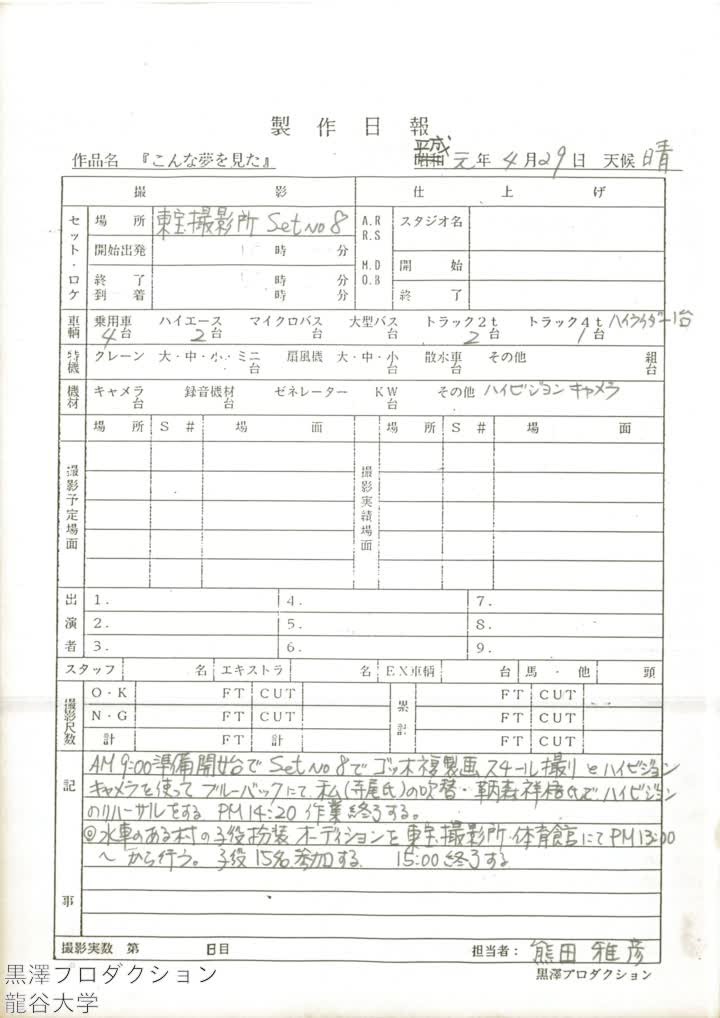 製作日報
作品名 『こんな夢を見た』 平成 元年 4月29日 天候 晴
撮影 仕上げ
セット・ロケ 場所 東宝撮影所 Set No 8 A.R R.S スタジオ名
開始出発 時 分
M.D O.B 開始
終了到着 時 分 時 分 終了
車輌 乗用車 4台 ハイエース 2台 マイクロバス 台 大型バス 台 トラック2t 2台 トラック4t 1台 ハイライダー1台
特機 クレーン 大・中・小・ミニ 台 扇風機 大・中・小 台 散水車 台 その他 組 台
機材 キャメラ 台 録音機材 台 ゼネレーター KW 台 その他 ハイビジョンキャメラ
場所 S# 場面 場所 S# 場面
撮影予定場面 撮影実績場面
出演者 1. 4. 7.
2. 5. 8.
3. 6. 9.
スタッフ 名 エキストラ 名 EX車輌 台 馬・他 頭
撮影尺数 O・K FT CUT 累計 FT CUT
N・G FT CUT FT CUT
計 FT 計 FT CUT
記事 AM 9:00 準備開始で Set No 8で ゴッホ複製画スチール撮りとハイビジョン
キャメラを使って ブルーバックにて、私(寺尾氏)の吹替・ 氏で、ハイビジョン
のリハーサルをする。PM 14:20 作業終了する。
◎水車のある村の子役扮装オーディションを東宝撮影所・体育館にてPM 13:00
〜から行う。子役15名参加する。 15:00終了する
撮影実数 第 日目 担当者: 熊田雅彦
黒澤プロダクション
黒澤プロダクション
龍谷大学